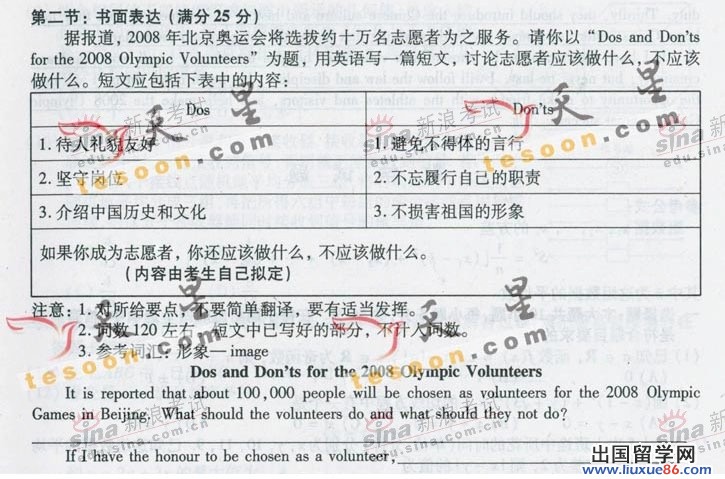 第二节：书面表达（满分25分）
据报道，2008年北京奥运会将选拔约十万名志愿者为之服务。请你以“Dos and Don'ts
for the 2008 Olympic Volunteers”为题，用英语写一篇短文，讨论志愿者应该做什么，不应该
做什么。短文应包括下表中的内容：
Dos Don'ts
1. 待人礼貌友好 1. 避免不得体的言行
2. 坚守岗位 2. 不忘履行自己的职责
3. 介绍中国历史和文化 3. 不损害祖国的形象
如果你成为志愿者，你还应该做什么，不应该做什么。
（内容由考生自己拟定）
注意：1. 对所给要点，不要简单翻译，要有适当发挥。
2. 词数120左右，短文中已写好的部分，不计入词数。
3. 参考词汇：形象—image
Dos and Don'ts for the 2008 Olympic Volunteers
It is reported that about 100,000 people will be chosen as volunteers for the 2008 Olympic
Games in Beijing. What should the volunteers do and what should they not do?
If I have the honour to be chosen as a volunteer,
天星
tesoon.com
天星
tesoon.com
天星
tesoon.com
天星
tesoon.com
sina新浪考试
edu.sina.com
sina新浪考试
edu.sina
sina新浪考试
sina新浪考试
出国留学网
www.liuxue86.com